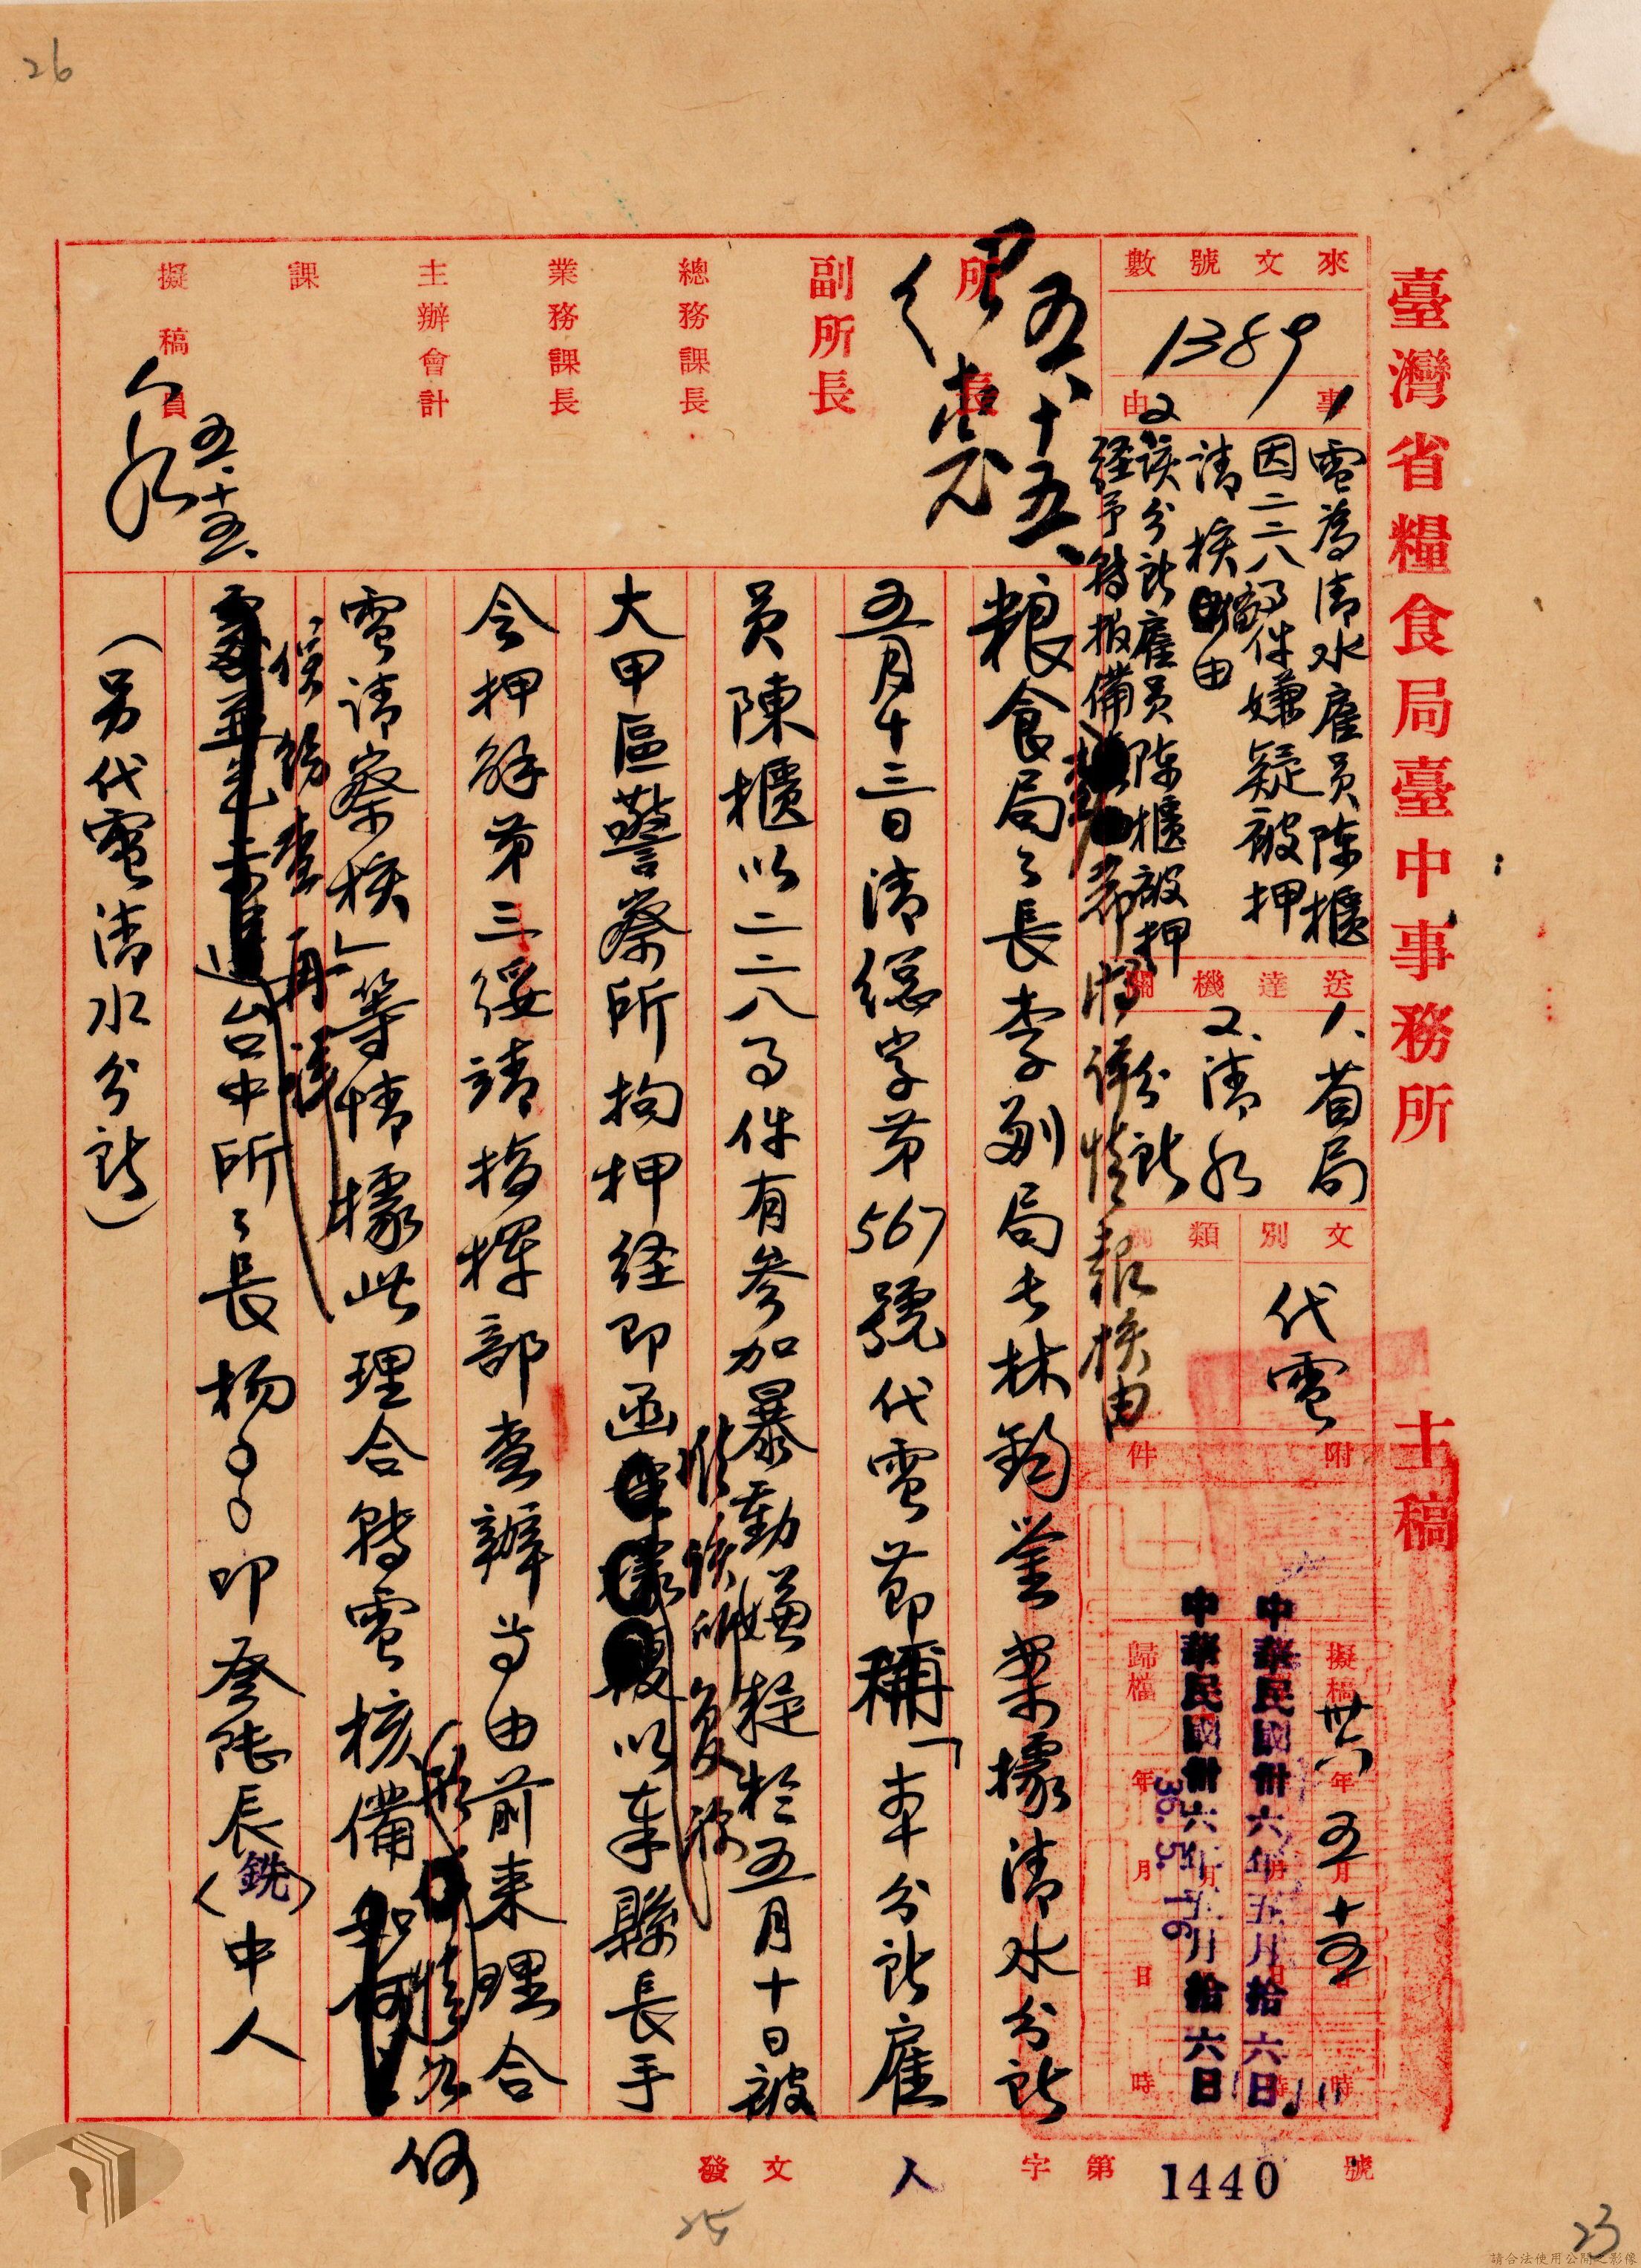 26
臺灣省糧食局臺中事務所
主稿
來文號數
1389
事由
1 電為清水雇員陳櫃
因二二八事件嫌疑被押
請核備由
2 該分所雇員陳櫃被押
經予轉報備
希將詳情報核由
送達機關
1、省局
2、清水
分所
文別
代電
類別
附件
擬稿
卅六年五月十五日
時
中華民國卅六年五月拾六日
中華民國卅六年五月拾六日
36.5.16
歸檔
年月日時
所長
五、十五、
副所長
總務課長
業務課長
主辦會計
課
擬稿員
五、十五、
粮食局局長李副局長林鈞鑒案據清水分所
五月十三日清總字第567號代電節稱「本分所雇
員陳櫃以二二八事件有參加暴動嫌疑於五月十日被
大甲區警察所拘押経即函
准該所復稱
以奉縣長手
令押解第三綏靖指揮部查辦等由前來理合
電請察核」等情據此理合轉電核備
形
情為
何
俟飭查再
台中所所長楊〇〇叩發陸辰(銑)中人
(另代電清水分所)
發文
人
字第
1440
號
25
23
請合法使用公開之影像